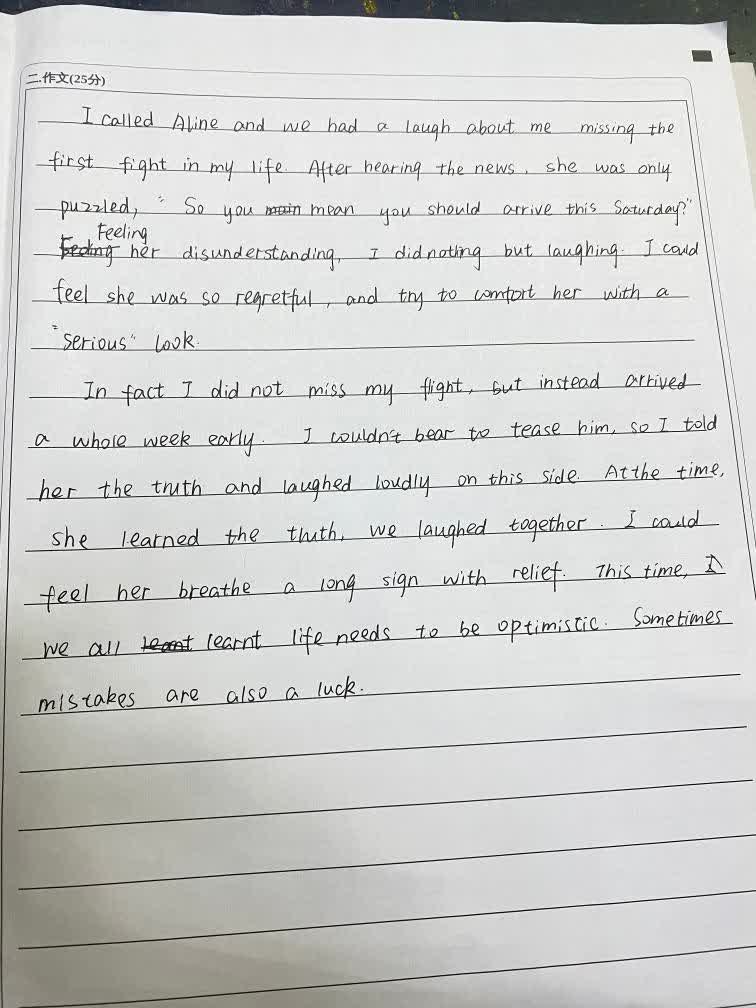 二.作文(25分)
I called Aline and we had a laugh about me missing the
first fight in my life. After hearing the news, she was only
puzzled, "So you mean you should arrive this Saturday?"
Feeling her disunderstanding, I did noting but laughing. I could
feel she was so regretful, and try to comfort her with a
"serious" look.
In fact I did not miss my flight, but instead arrived
a whole week early. I couldn't bear to tease him, so I told
her the truth and laughed loudly on this side. At the time,
she learned the thuth, we laughed together. I could
feel her breathe a long sign with relief. This time,
we all learnt life needs to be optimistic. Sometimes
mistakes are also a luck.